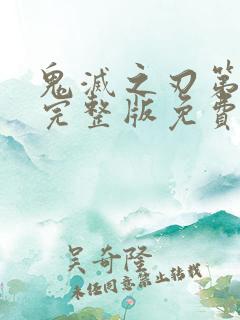 鬼滅之刃第
完整版免費
吳奇隆
未任同意禁止转载